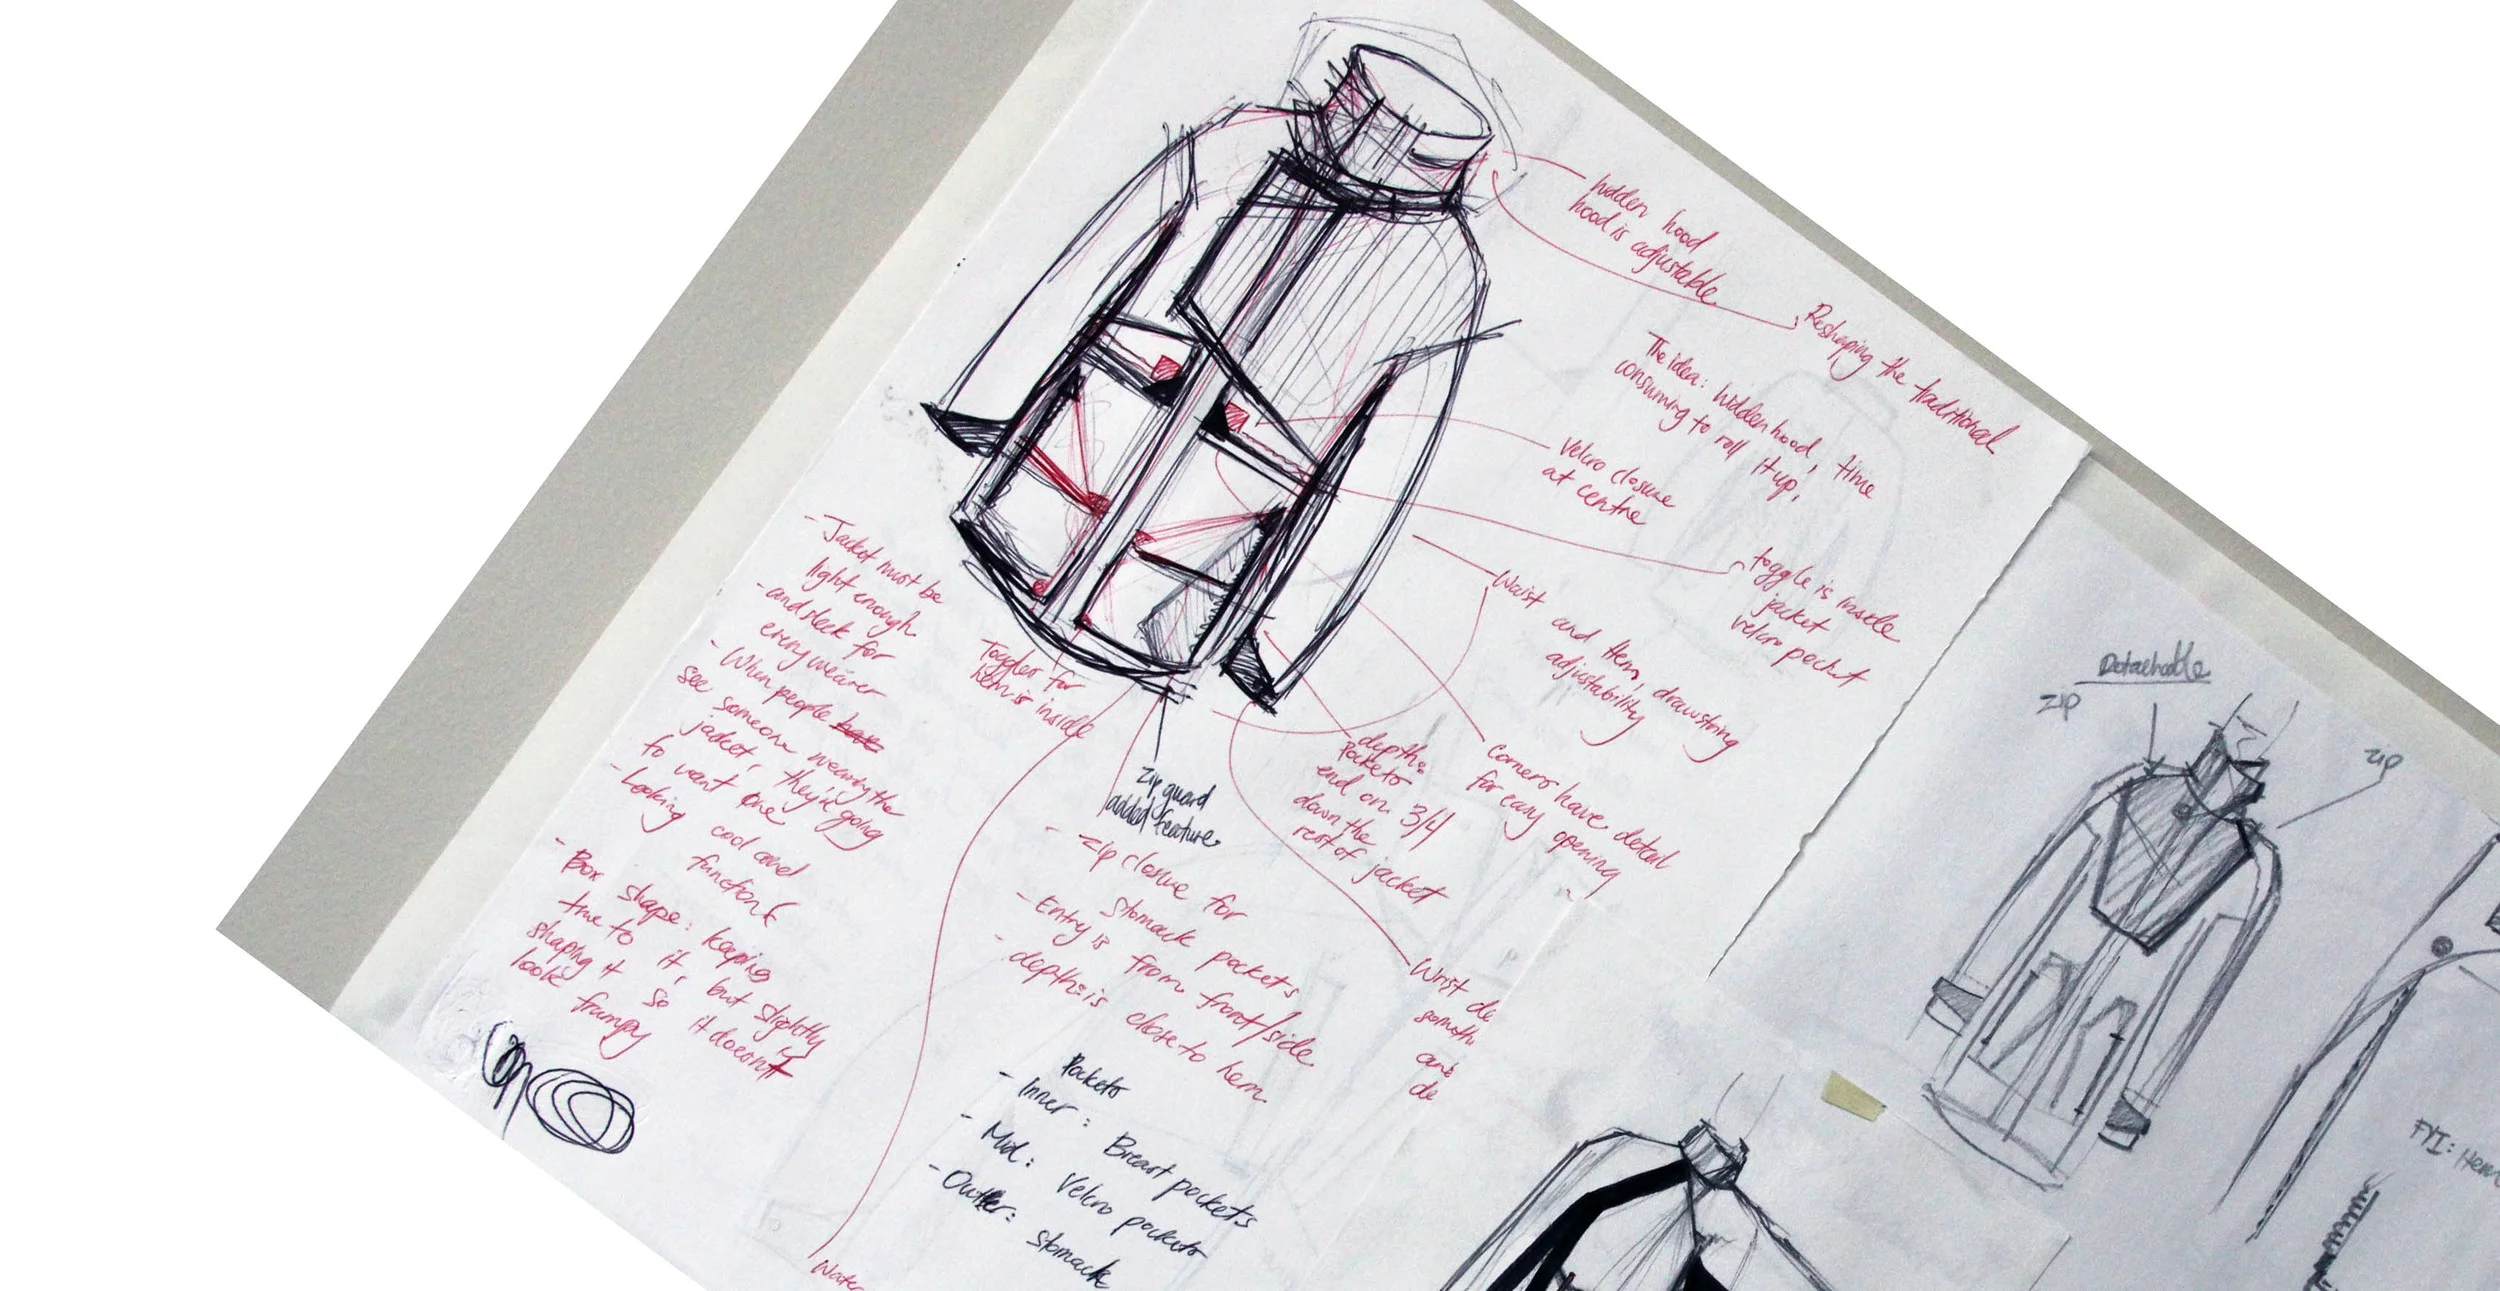 hidden hood
hood is adjustable
Reshaping the traditional
The idea: hidden hood, time
consuming to roll it up,
Velcro closure
at centre
toggle is inside
jacket
velcro pocket
Waist and Hem, drawstring
adjustability
Corners have detail
for easy opening
depth:
Pockets
end on 3/4
down the
rest of jacket
Wrist de
someth
and
de
- Jacket must be
light enough
- and sleek for
every wearer
- When people
see someone wearing the
jacket, they're going
to want one
- Looking cool and
function
- Box shape: keeping
true to it, but slightly
shaping it so it doesn't
look frumpy
Toggles for
hem is inside
Zip guard
added feature
- Zip closure for
stomack pockets
- Entry is from front/side
- depth: is close to hem
Pockets
- Inner: Breast pockets
- Mid: Velcro pockets
- Outter: stomack
Water
Detachable
Zip
Zip
FYI: Hem